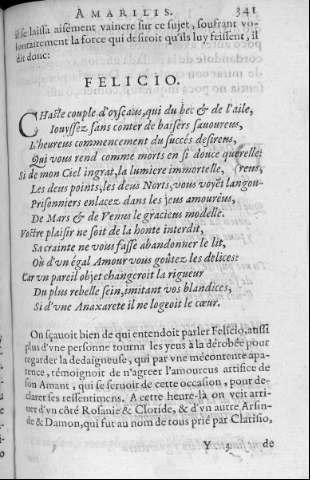 AMARILIS. 341
il se laissa aisément vaincre sur ce sujet, soufrant vo-
lontairement la force qui desiroit qu'ils luy feissent, il
dit donc:
FELICIO.
CHaste couple d'oyseaus, qui du bec & de l'aile,
Iouyssez sans conter de baisers sauoureus,
L'heureus commencement du succés desireus,
Qui vous rend comme morts en si douce querelle:
Si de mon Ciel ingrat, la lumiere immortelle, (reus,
Les deus points, les deus Norts, vous voyēt langou-
Prisonniers enlacez dans les jeus amoureus,
De Mars & de Venus le gracieus modelle.
Vostre plaisir ne soit de la honte interdit,
Sa crainte ne vous fasse abandonner le lit,
Où d'vn égal Amour vous goûtez les delices:
Car vn pareil objet changeroit la rigueur
Du plus rebelle sein, imitant vos blandices,
Si d'vne Anaxarete il ne logeoit le cœur.
On sçauoit bien de qui entendoit parler Felicio, aussi
plus d'vne personne tourna les yeus à la dérobée pour
regarder la dedaigneuse, qui par vne mécontente apa-
rence, témoignoit de n'agreer l'amoureus artifice de
son Amant, qui se seruoit de cette occasion, pour de-
clarer ses ressentimens. A cette heure-là on veit arri-
uer d'vn côté Rosanie & Cloride, & d'vn autre Arsin-
de & Damon, qui fut au nom de tous prié par Clarisio,
Y 3 de